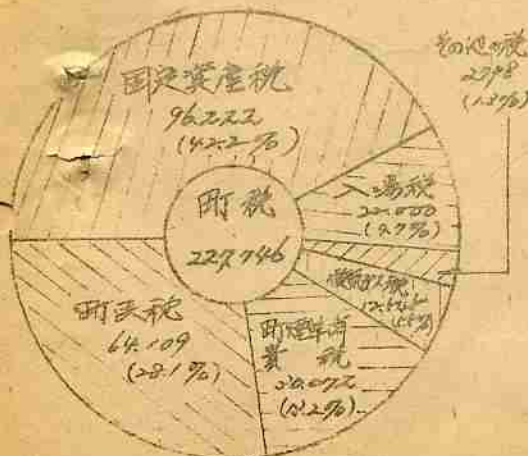 固定資産税
96.222
(42.2%)
その他の税
2798
(1.3%)
入場税
22.000
(9.7%)
町税
227.746
電気ガス税
町民税
64.109
(28.1%)
町煙草消
費税
30.072
(13.2%)